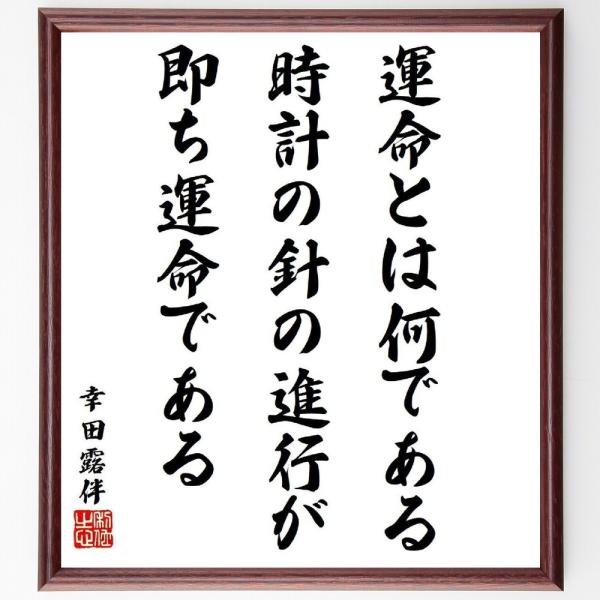 運命とは何である
時計の針の進行が
即ち運命である
幸田露伴